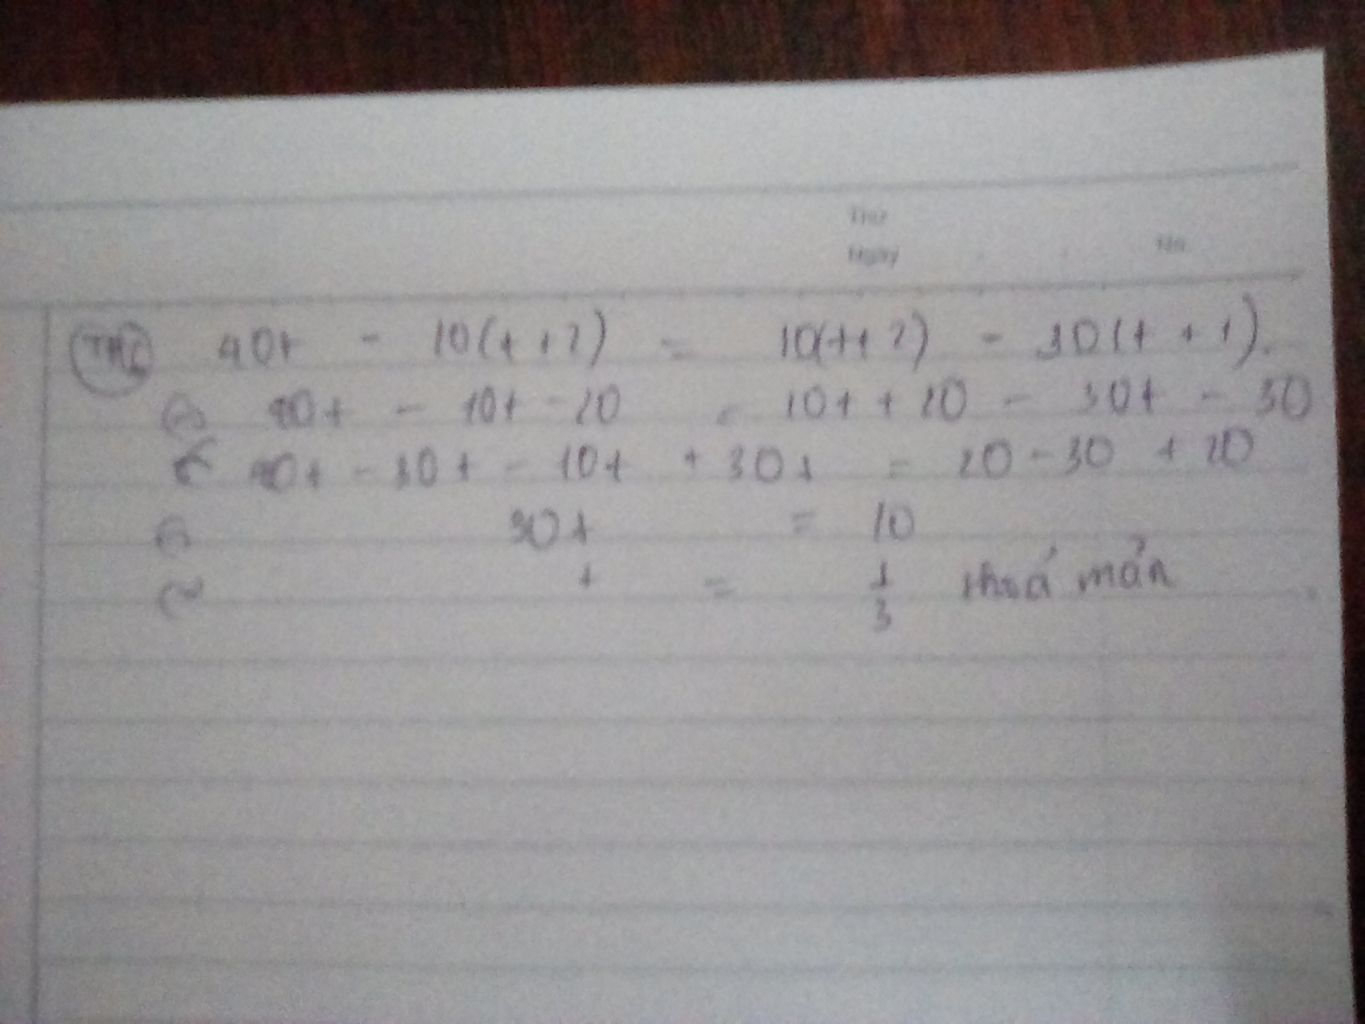 Thứ
Ngày
No.
TH2 40t - 10(t + 2) = 10(t+2) - 30(t + 1).
⇔ 40t - 10t - 20 = 10t + 20 - 30t - 30
⇔ 40t - 10t - 10t + 30t = 20 - 30 + 20
⇔ 30t = 10
⇔ t = 1/3 thoả mãn